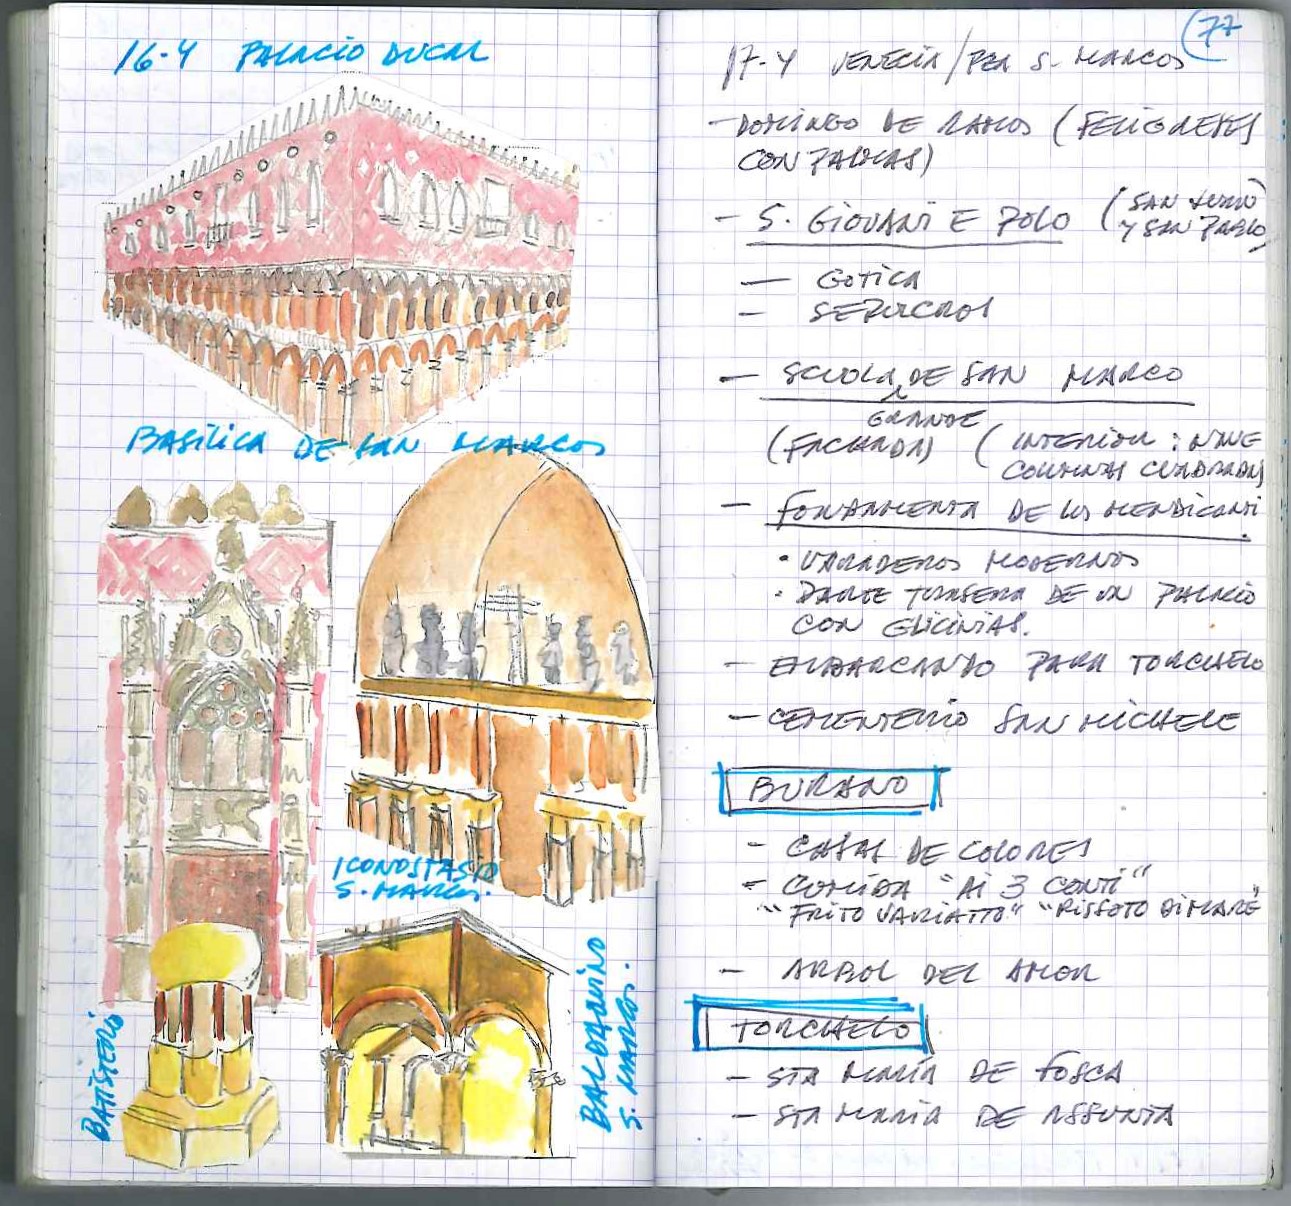 16-4 PALACIO DUCAL
BASILICA DE SAN MARCOS
ICONOSTASIO
S. MARCOS.
BATISTERIO
BALDAQUINO
S. MARCOS.
77
17-4 VENECIA/PZA S. MARCOS
- DOMINGO DE RAMOS (FELIGRESES
CON PALMAS)
- S. GIOVANI E POLO (SAN JUAN
Y SAN PABLO)
- GOTICA
- SEPULCROS
- SCUOLA DE SAN MARCO
GRANDE
(FACHADA) (INTERIOR: NAVE
COLUMNAS CUADRADAS)
- FONDAMENTA DE LOS MENDICANTI
• VARADEROS MODERNOS
• PARTE TRASERA DE UN PALACIO
CON GLICINIAS.
- EMBARCANDO PARA TORCHELO
- CEMENTERIO SAN MICHELE
BURANO
- CASAS DE COLORES
- COMIDA "AI 3 CONTI"
"FRITO VARIATTO" "RISSOTO DI MARE"
- ARBOL DEL AMOR
TORCHELO
- STA MARIA DE FOSCA
- STA MARIA DE ASSUNTA